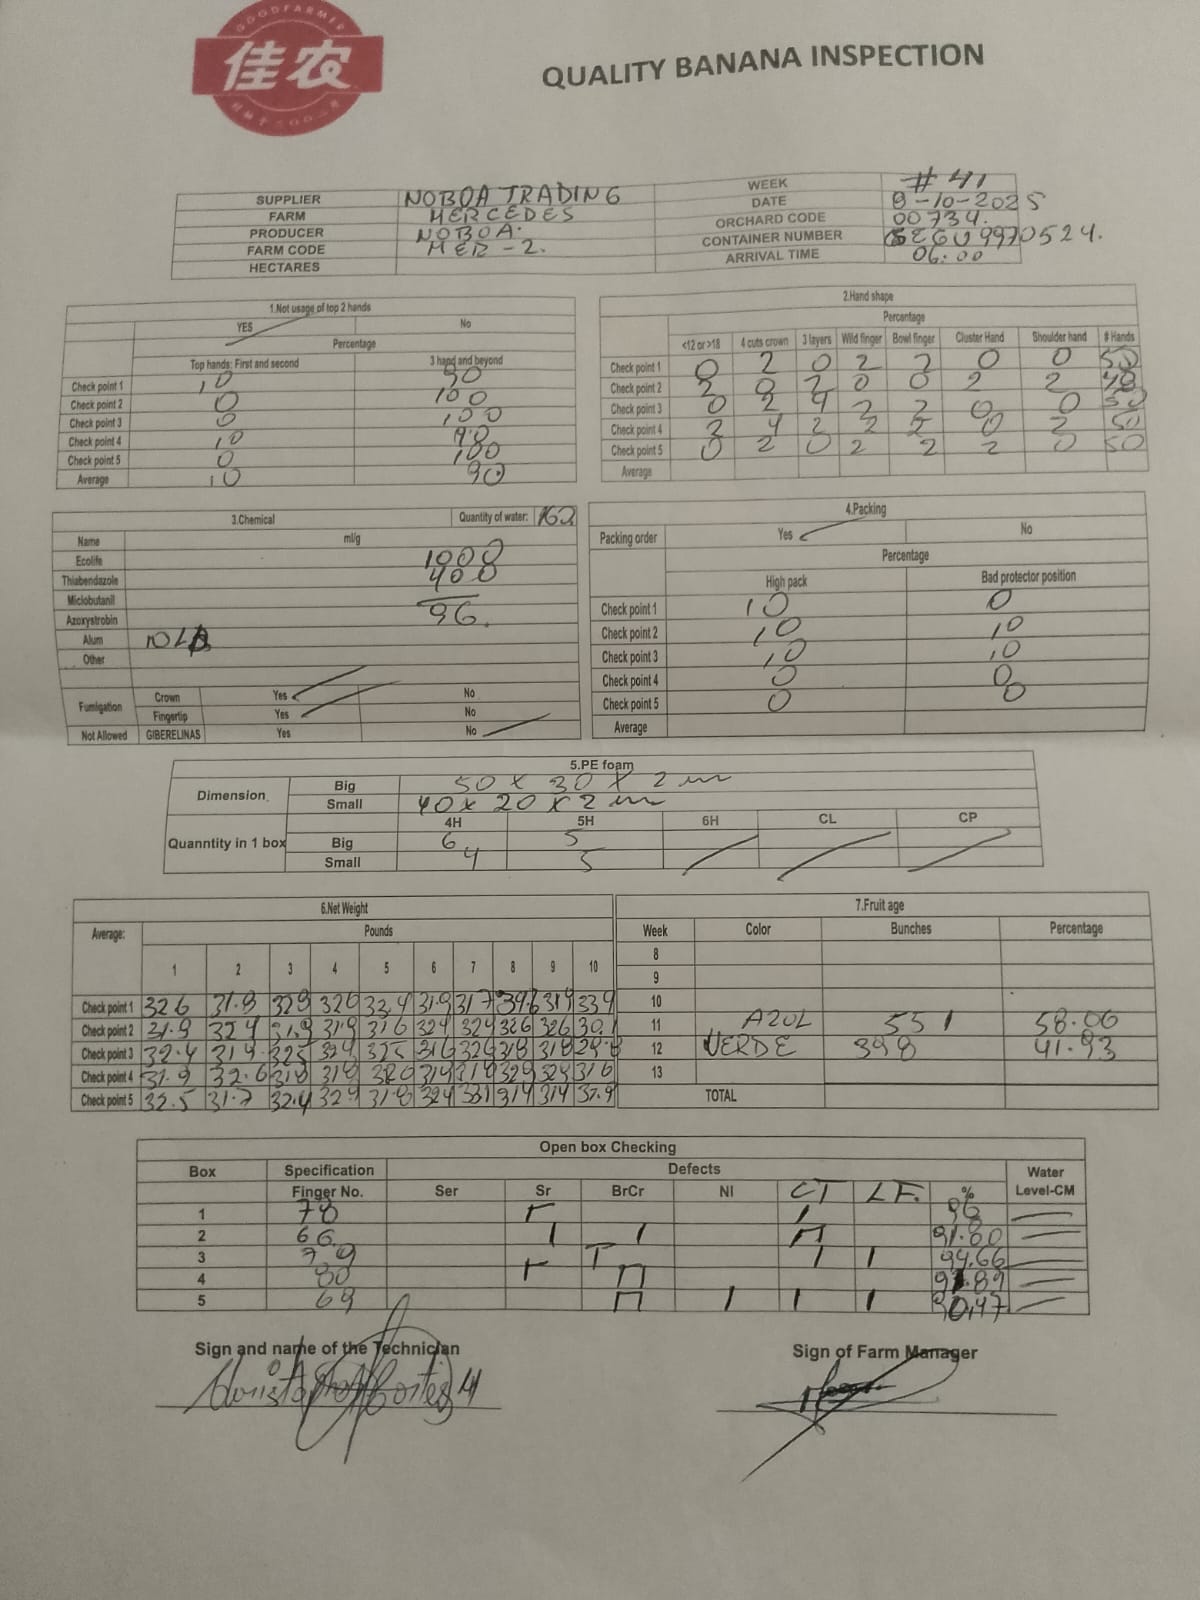 GOODFARMER
佳农
QUALITY BANANA INSPECTION
SUPPLIER NOBOA TRADING WEEK # 41
FARM MERCEDES DATE 9-10-2025
PRODUCER NOBOA. ORCHARD CODE 00734.
FARM CODE MER-2. CONTAINER NUMBER SEGU9970524.
HECTARES ARRIVAL TIME 06:00
1.Not usage of top 2 hands
YES No
Percentage
Top hands: First and second 3 hand and beyond
Check point 1 10 90
Check point 2 0 100
Check point 3 0 100
Check point 4 10 90
Check point 5 0 100
Average 10 90
2.Hand shape
Percentage
<12 or >18 4 cuts crown 3 layers Wild finger Bowl finger Cluster Hand Shoulder hand # Hands
Check point 1 0 2 0 2 2 0 0 50
Check point 2 2 0 2 0 0 2 2 48
Check point 3 0 2 4 2 2 0 0 50
Check point 4 2 4 2 2 2 0 2 50
Check point 5 0 2 0 2 2 2 0 50
Average
3.Chemical Quantity of water: 162
Name ml/g
Ecolife 1000
Thiabendazole 400
Miclobutanil —
Azoxystrobin 96.
Alum 10L
Other
Fumigation Crown Yes No
Fingertip Yes No
Not Allowed GIBERELINAS Yes No
4.Packing
Packing order Yes No
Percentage
High pack Bad protector position
Check point 1 10 0
Check point 2 10 10
Check point 3 10 10
Check point 4 0 0
Check point 5 0 0
Average
5.PE foam
Dimension Big 50 x 30 x 2 m
Small 40 x 20 x 2 m
4H 5H 6H CL CP
Quanntity in 1 box Big 6 5
Small 4 5
6.Net Weight
Average: Pounds
1 2 3 4 5 6 7 8 9 10
Check point 1 326 31.8 328 326 33.4 31.9 317 314 339
Check point 2 31.9 324 31.9 31.9 316 324 324 326 326 30.1
Check point 3 32.4 314 325 324 325 316 326 318 318
Check point 4 31.9 32.6 318 318 320 314 318 329 324 316
Check point 5 32.5 31.7 32.4 329 31.8 324 331 314 314 32.9
7.Fruit age
Week Color Bunches Percentage
8
9
10
11 AZUL 551 58.06
12 VERDE 398 41.93
13
TOTAL
Open box Checking
Box Specification Defects Water
Finger No. Ser Sr BrCr NI CT LF. % Level-CM
1 78 96
2 66 91.80
3 79 94.66
4 80
5 69 90,47
Sign and name of the Technician Sign of Farm Manager